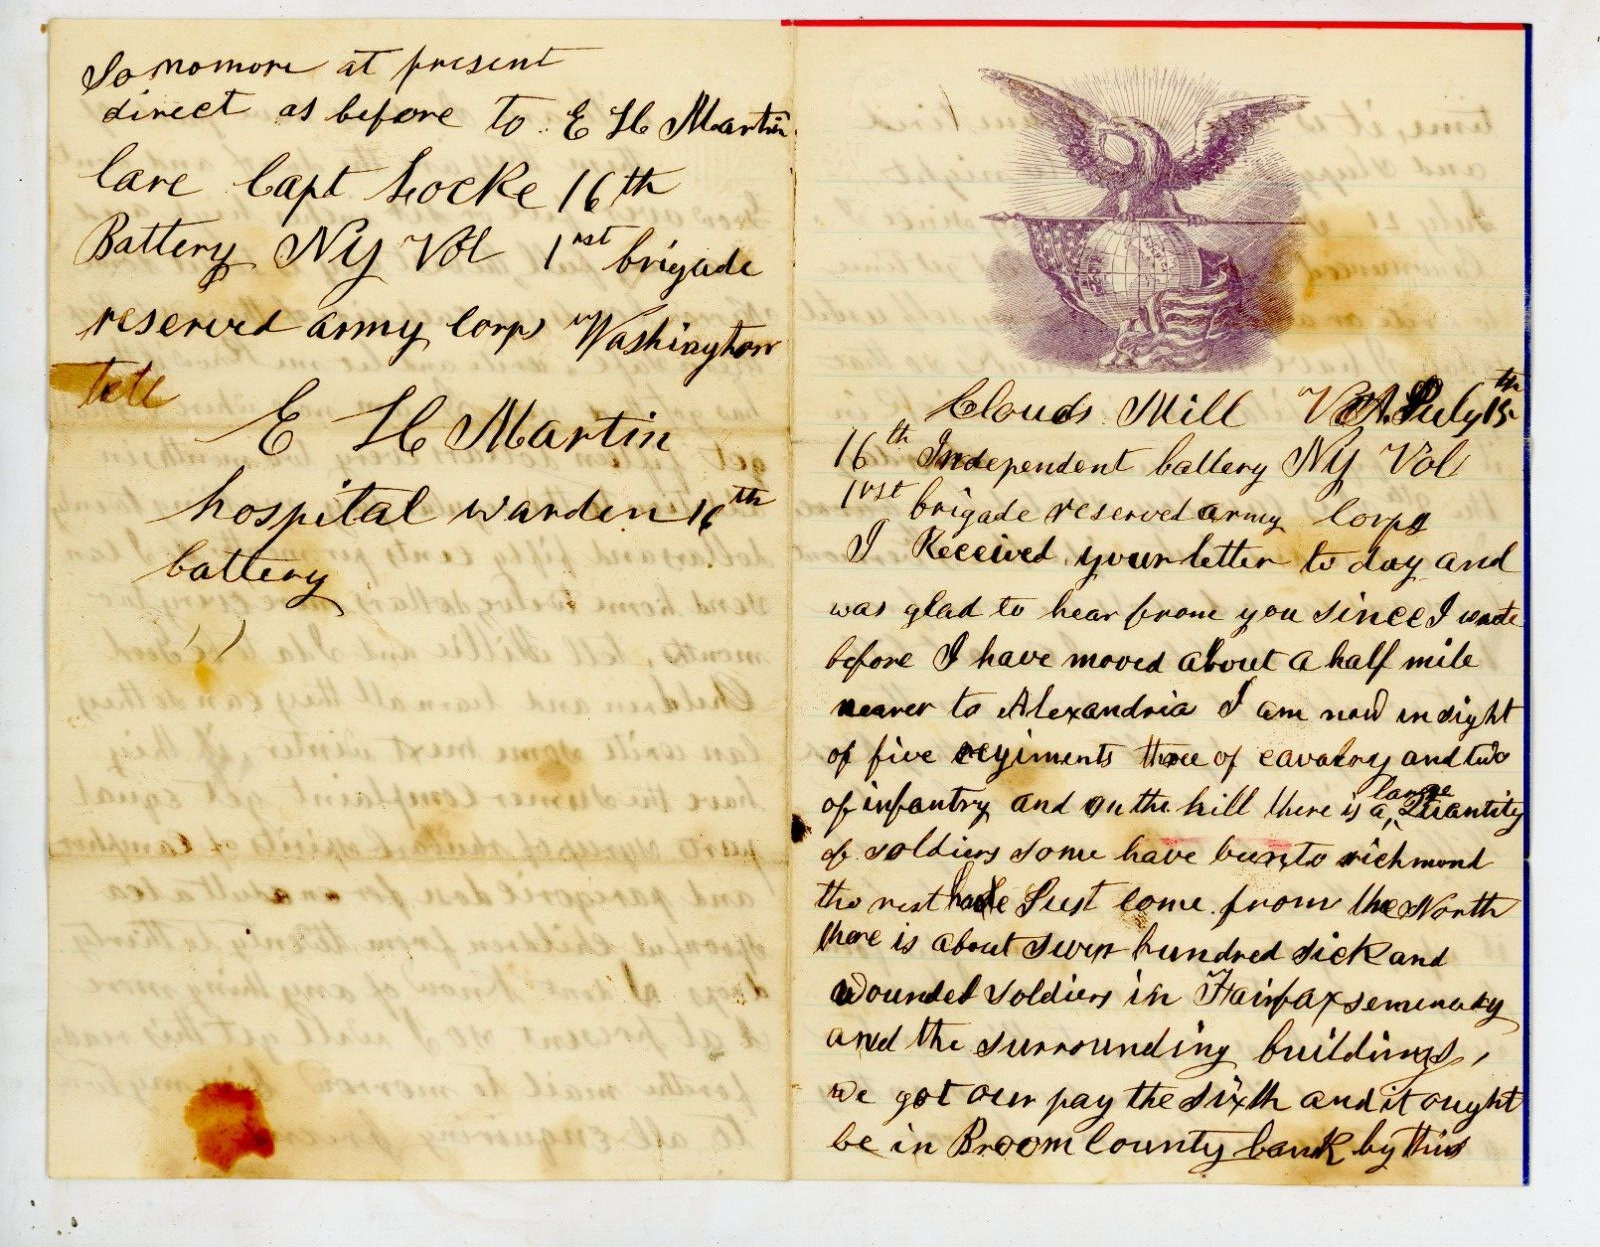 So nomore at present
direct as before to E H Martin
Care Capt Locke 16th
Battery NY Vol 1rst brigade
reserved army Corps Washington
E H Martin
hospital warden 16th
battery
Clouds Mill VA July 15th
16th Independent battery NY Vol
1rst brigade reserved army Corps
I Received your letter to day and
was glad to hear from you since I wrote
before I have moved about a half mile
nearer to Alexandria I am now in sight
of five regiments three of cavalry and two
of infantry and on the hill there is a large Quantity
of soldiers some have been to richmond
the rest have Just come from the North
there is about seven hundred sick and
wounded soldiers in Fairfax semenary
and the surrounding buildings,
we got our pay the sixth and it ought
be in Broom County bank by this